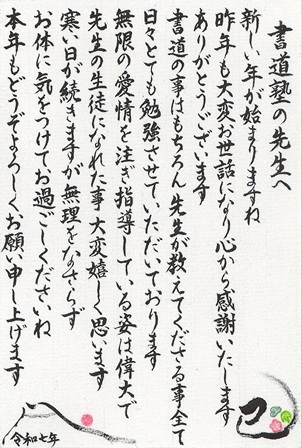 書道塾の先生へ
新しい年が始まりますね
昨年も大変お世話になり心から感謝いたします
ありがとうございます
書道の事はもちろん先生が教えてくださる事全て
日々とても勉強させていただいております
無限の愛情を注ぎ指導している姿は偉大で
先生の生徒になれた事大変嬉しく思います
寒い日が続きますが無理をなさらず
お体に気をつけてお過ごしくださいね
本年もどうぞよろしくお願い申し上げます
令和七年
巳